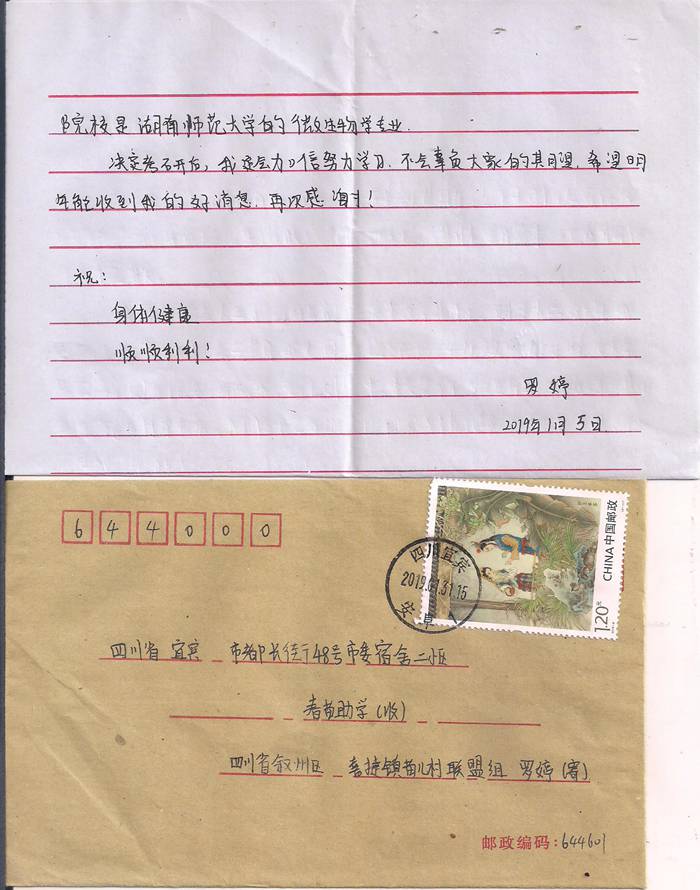 院校是湖南师范大学的微生物学专业.
决定考研后,我定会加倍努力学习.不会辜负大家的期望.希望明
年能收到我的好消息.再次感谢!
祝:
身体健康
顺顺利利!
罗婷
2019年1月5日.
644000
CHINA 中国邮政
1.20元
四川宜宾
2019.01.31.15
四川省宜宾市都长街48号市委宿舍二小区
春苗助学(收)
四川省叙州区喜捷镇苗儿村联盟组 罗婷(寄)
邮政编码:644601